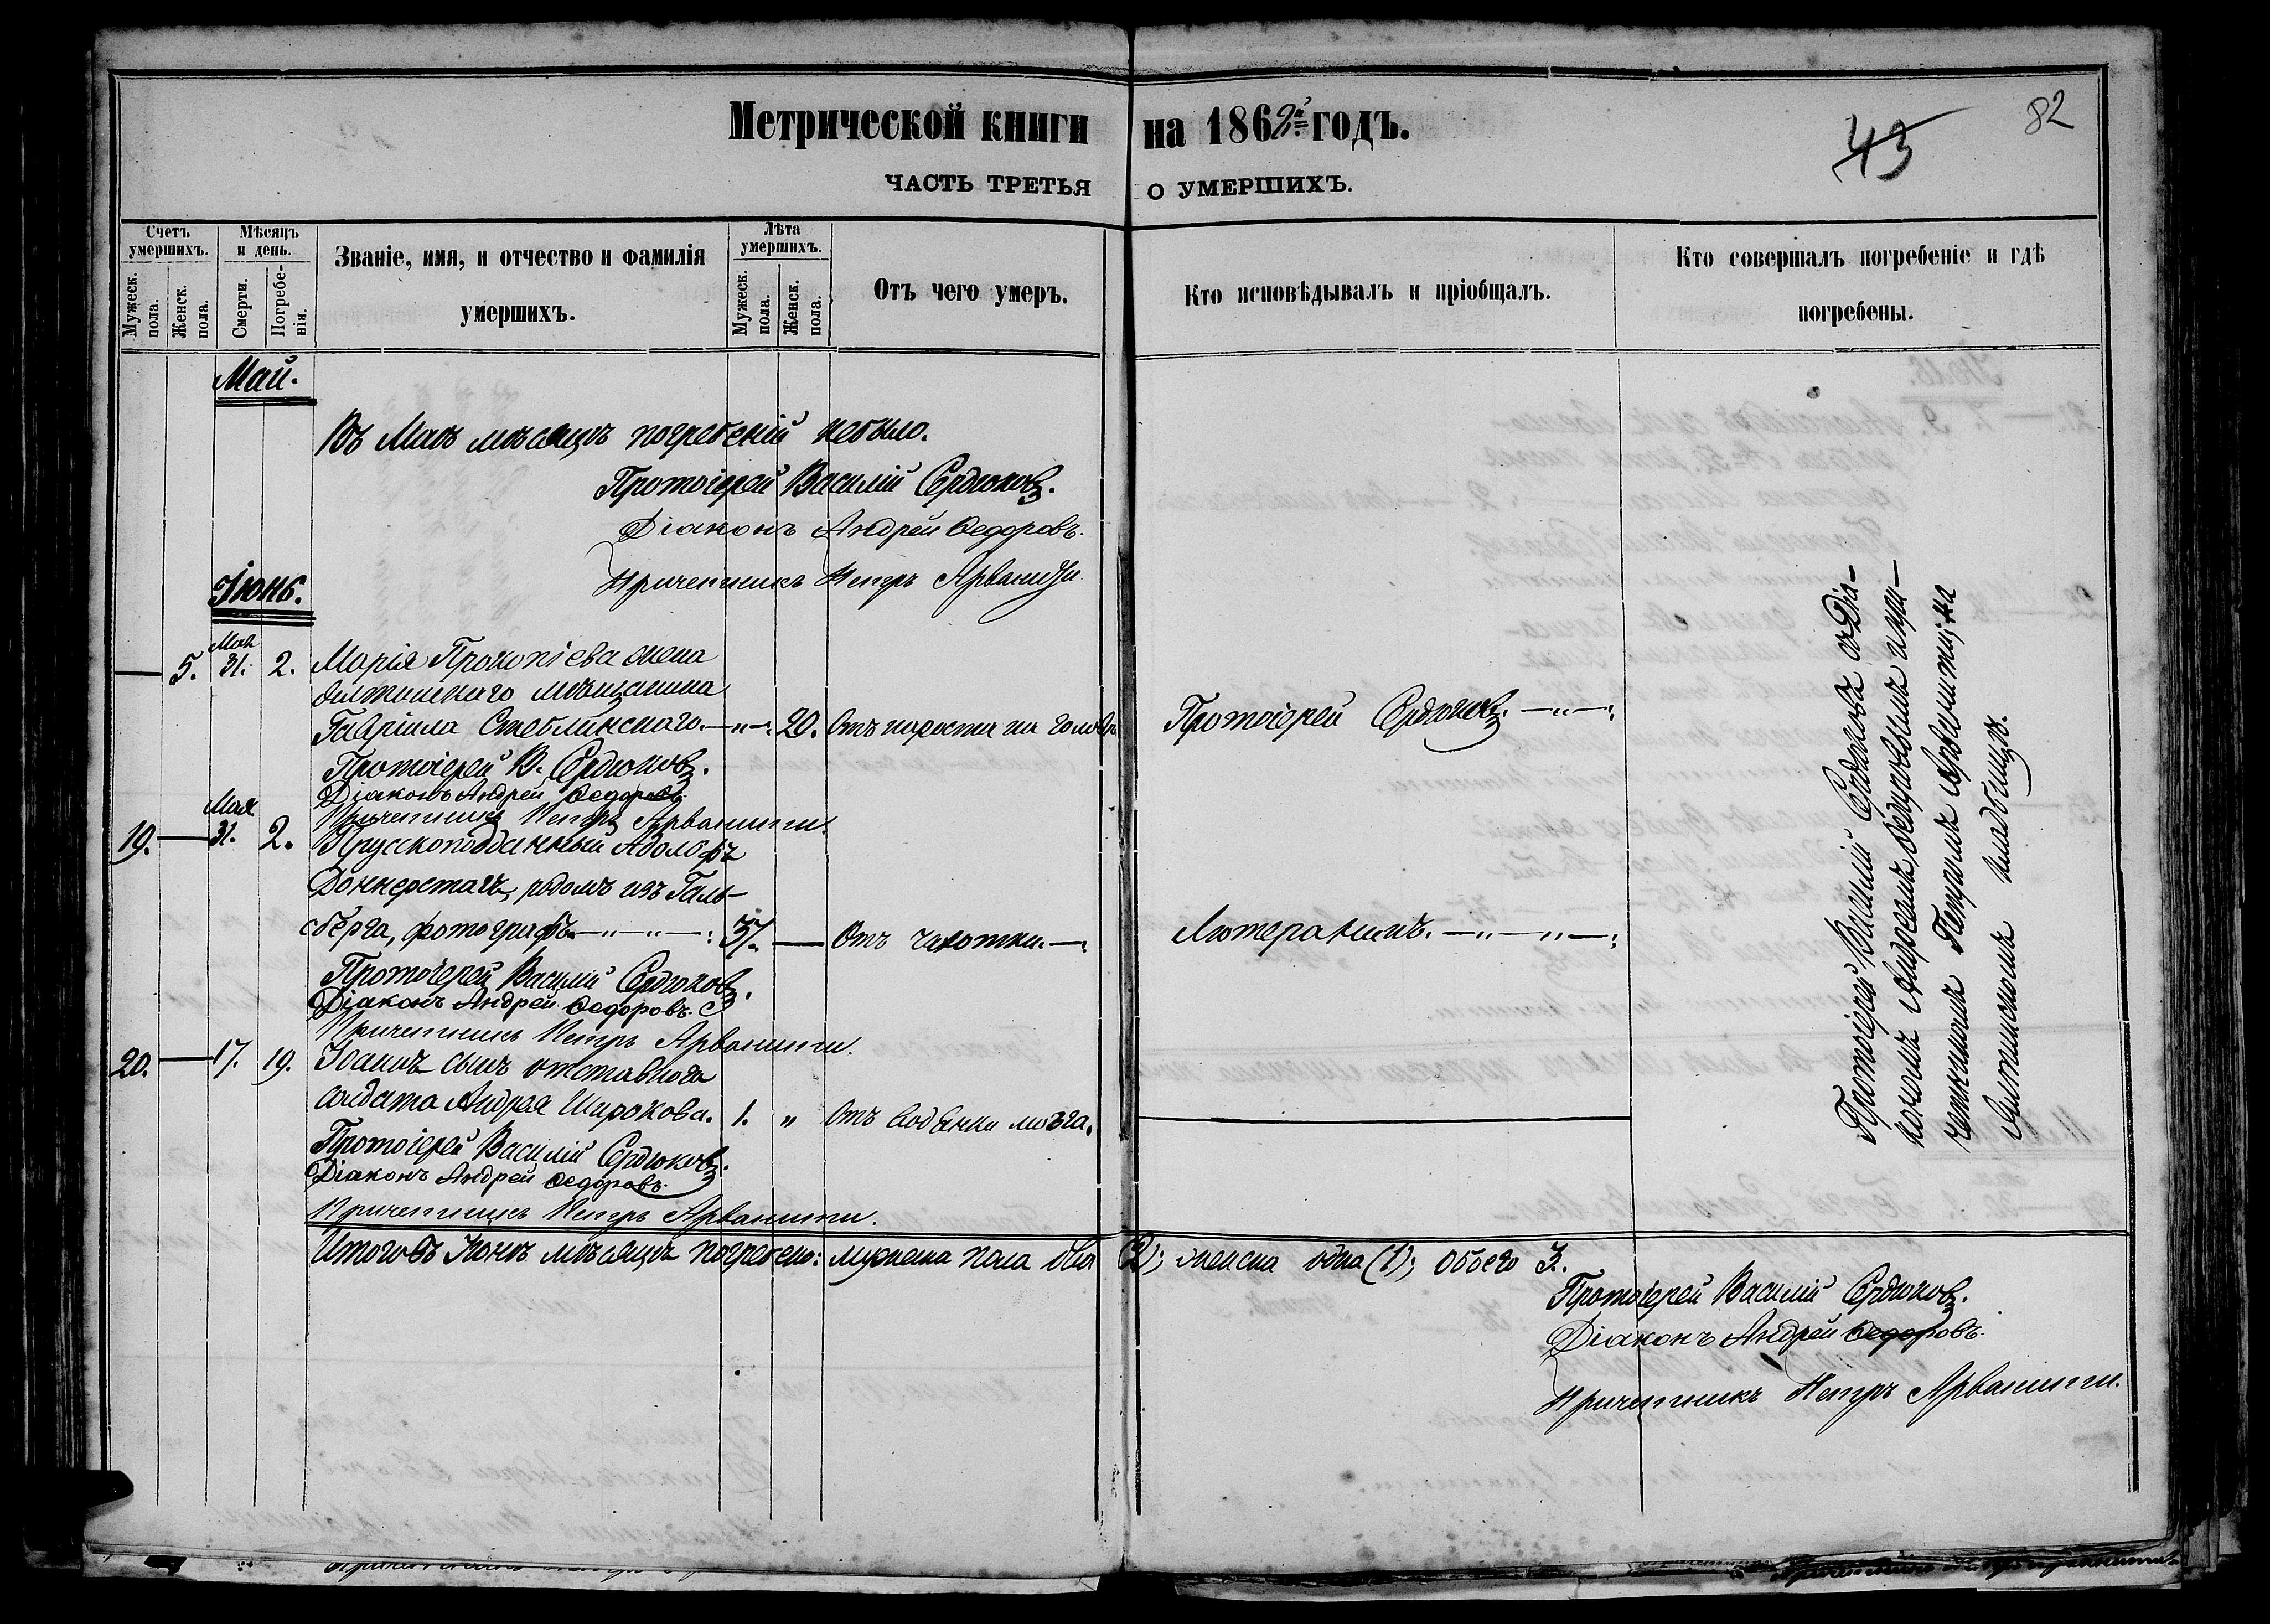 Метрической книги на 1862й годъ.
43
82
ЧАСТЬ ТРЕТЬЯ О УМЕРШИХЪ.
Счетъ умершихъ.
Мужеск. пола.
Женск. пола.
Мѣсяцъ и день.
Смерти.
Погребенія.
Званіе, имя, и отчество и фамилія
умершихъ.
Лѣта умершихъ.
Мужеск. пола.
Женск. пола.
Отъ чего умеръ.
Кто исповѣдывалъ и пріобщалъ.
Кто совершалъ погребеніе и гдѣ
погребены.
Май.
Въ Маѣ мѣсяцѣ погребеній небыло.
Протоіерей Василій Сердюковъ.
Діаконъ Андрей Ѳедоровъ.
Причетникъ Петръ Арваниди.
Іюнь.
Мая
— 5. 31. 2. Марія Прокопіева жена
мѣщанина
Гавріила Стеблинскаго. —"—: 20. Отъ нароста на головѣ. Протоіерей Сердюковъ. —"—:
Протоіерей В. Сердюковъ.
Діаконъ Андрей Ѳедоровъ.
Мая
Причетникъ Петръ Арванити.
19. — 31. 2. Прусскоподданный Адольфъ
родомъ изъ Галь-
сберга, фотографъ. —"—"—: 37. — Отъ чахотки. —: Лютеранинъ. —"—"—:
Протоіерей Василій Сердюковъ.
Діаконъ Андрей Ѳедоровъ.
Причетникъ Петръ Арванити.
20. — 17. 19. Іоаннъ сынъ отставнога
солдата Андрея Широкова. 1. " Отъ водянки мозга.
Протоіерей Василій Сердюковъ.
Діаконъ Андрей Ѳедоровъ.
Причетникъ Петръ Арванити.
Протоіерей Василій Сердюковъ съ Діа-
кономъ Андреемъ Ѳедоровымъ и при-
четникомъ Петромъ Арванити; на
кладбищѣ.
Итого въ Іюнѣ мѣсяцѣ погребено: мужеска пола два (2); женска одна (1); обоего 3.
Протоіерей Василій Сердюковъ.
Діаконъ Андрей Ѳедоровъ.
Причетникъ Петръ Арванити.